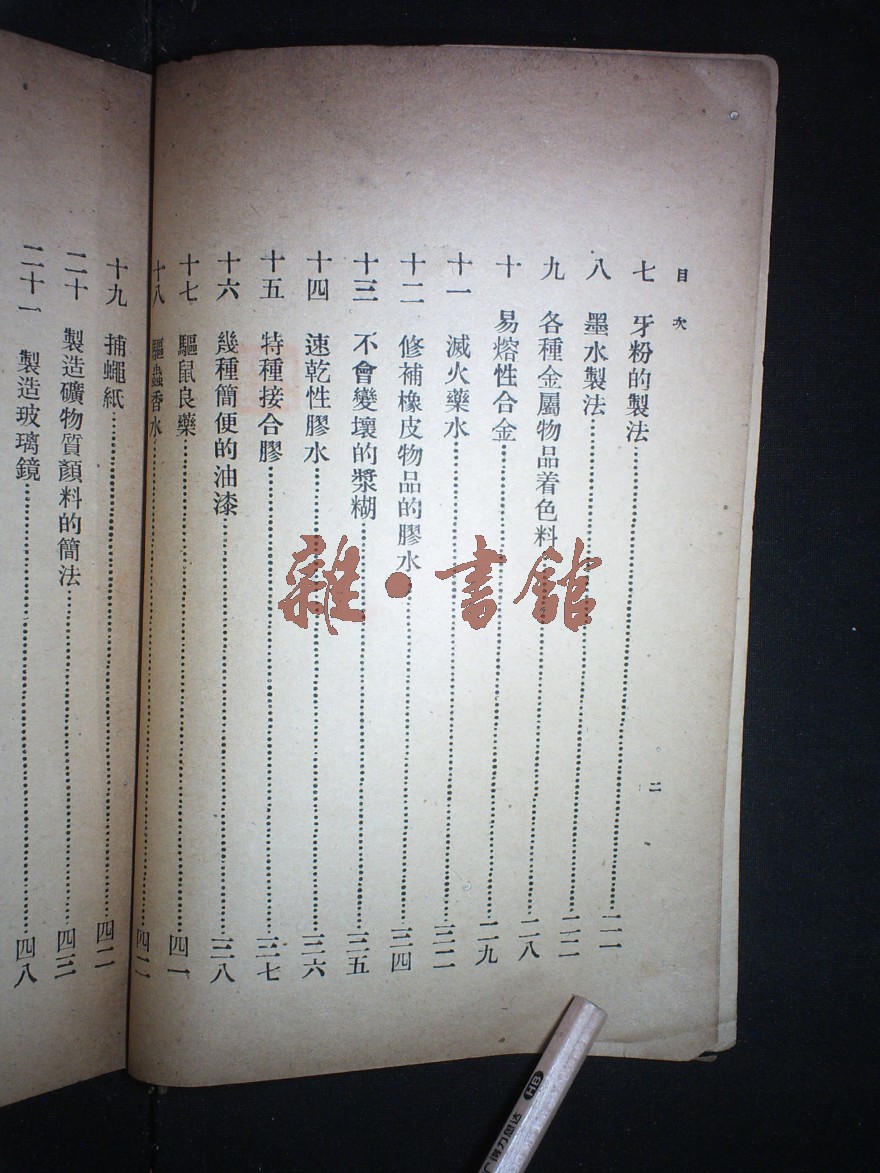 目次
二
七 牙粉的製法……二一
八 墨水製法……二二
九 各種金屬物品着色料……二八
十 易熔性合金……二九
十一 滅火藥水……三二
十二 修補橡皮物品的膠水……三四
十三 不會變壞的漿糊……三五
十四 速乾性膠水……三六
十五 特種接合膠……三七
十六 幾種簡便的油漆……三八
十七 驅鼠良藥……四一
十八 驅蟲香水……四二
十九 捕蠅紙……四二
二十 製造礦物質顏料的簡法……四三
二十一 製造玻璃鏡……四八
雜·書館
HB